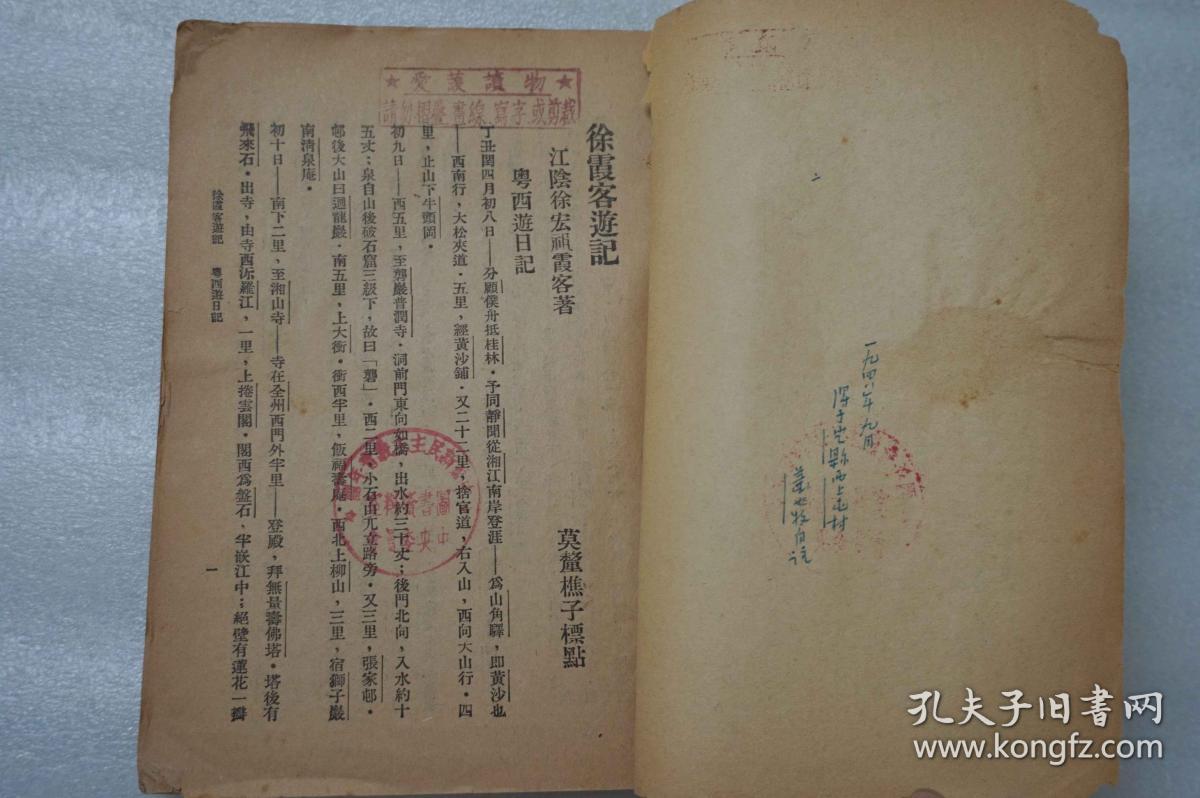 一九四八年九月
二
★愛護讀物★
請勿摺疊 畫線 寫字 或剪裁
徐霞客遊記
江陰徐宏祖霞客著
莫釐樵子標點
粵西遊日記
丁丑閏四月初八日——分顧僕舟抵桂林・予同靜聞從湘江南岸登涯——爲山角驛，即黃沙也
——西南行，大松夾道・五里，經黃沙鋪・又二十二里，捨官道，右入山，西向大山行・四
里，止山下牛頭岡・
初九日——西五里，至礱巖普潤寺・洞前門東向如橋，出水約三十丈；後門北向，入水約十
五丈；泉自山後破石窟三級下，故曰「礱」・西二里，小石山兀立路旁・又三里，張家邨・
邨後大山曰迴龍巖・南五里，上大衝・衝西半里，飯福壽庵・西北上柳山，三里，宿獅子巖
南清泉庵・
初十日——南下二里，至湘山寺——寺在全州西門外半里——登殿，拜無量壽佛塔・塔後有
飛來石・出寺，由寺西泝羅江，一里，上捲雲閣・閣西爲盤石，半嵌江中；絕壁有蓮花一瓣
徐霞客遊記 粵西遊日記
一
孔夫子旧书网
www.kongfz.com